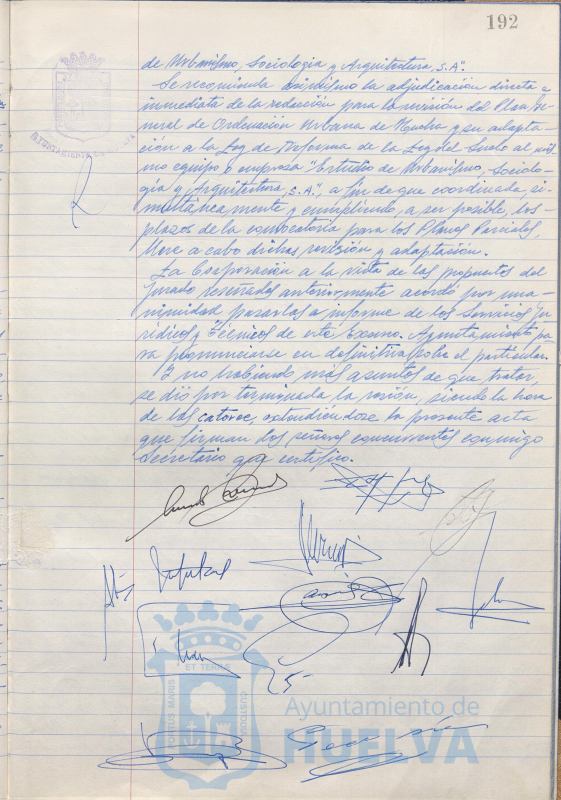 192
de Urbanismo, Sociologia y Arquitectura, S.A".
Se recomienda asimismo la adjudicación directa e
inmediata de la redacción para la revisión del Plan Ge-
neral de Ordenación Urbana de Huelva y su adapta-
ción a la Ley de Reforma de la Ley del Suelo al mis-
mo equipo o empresa "Estudio de Urbanismo, Sociolo-
gia y Arquitectura, S.A", a fin de que coordinada, si-
multáneamente y cumpliendo, a ser posible, los
plazos de la convocatoria para los Planes Parciales,
lleve a cabo dichas revisión y adaptación.
La Corporación a la vista de las propuestas del
Jurado reseñadas anteriormente acordó por una-
nimidad pasarlas a informe de los Servicios Ju-
rídicos y Técnicos de este Excmo. Ayuntamiento pa-
ra pronunciarse en definitiva sobre el particular.
Y no habiendo más asuntos de que tratar,
se dió por terminada la sesión, siendo la hora
de las catorce, extendiéndose la presente acta
que firman los señores concurrentes conmigo
Secretario que certifico.
PORTUS MARIS ET TERRE CUSTODIA
Ayuntamiento de
HUELVA